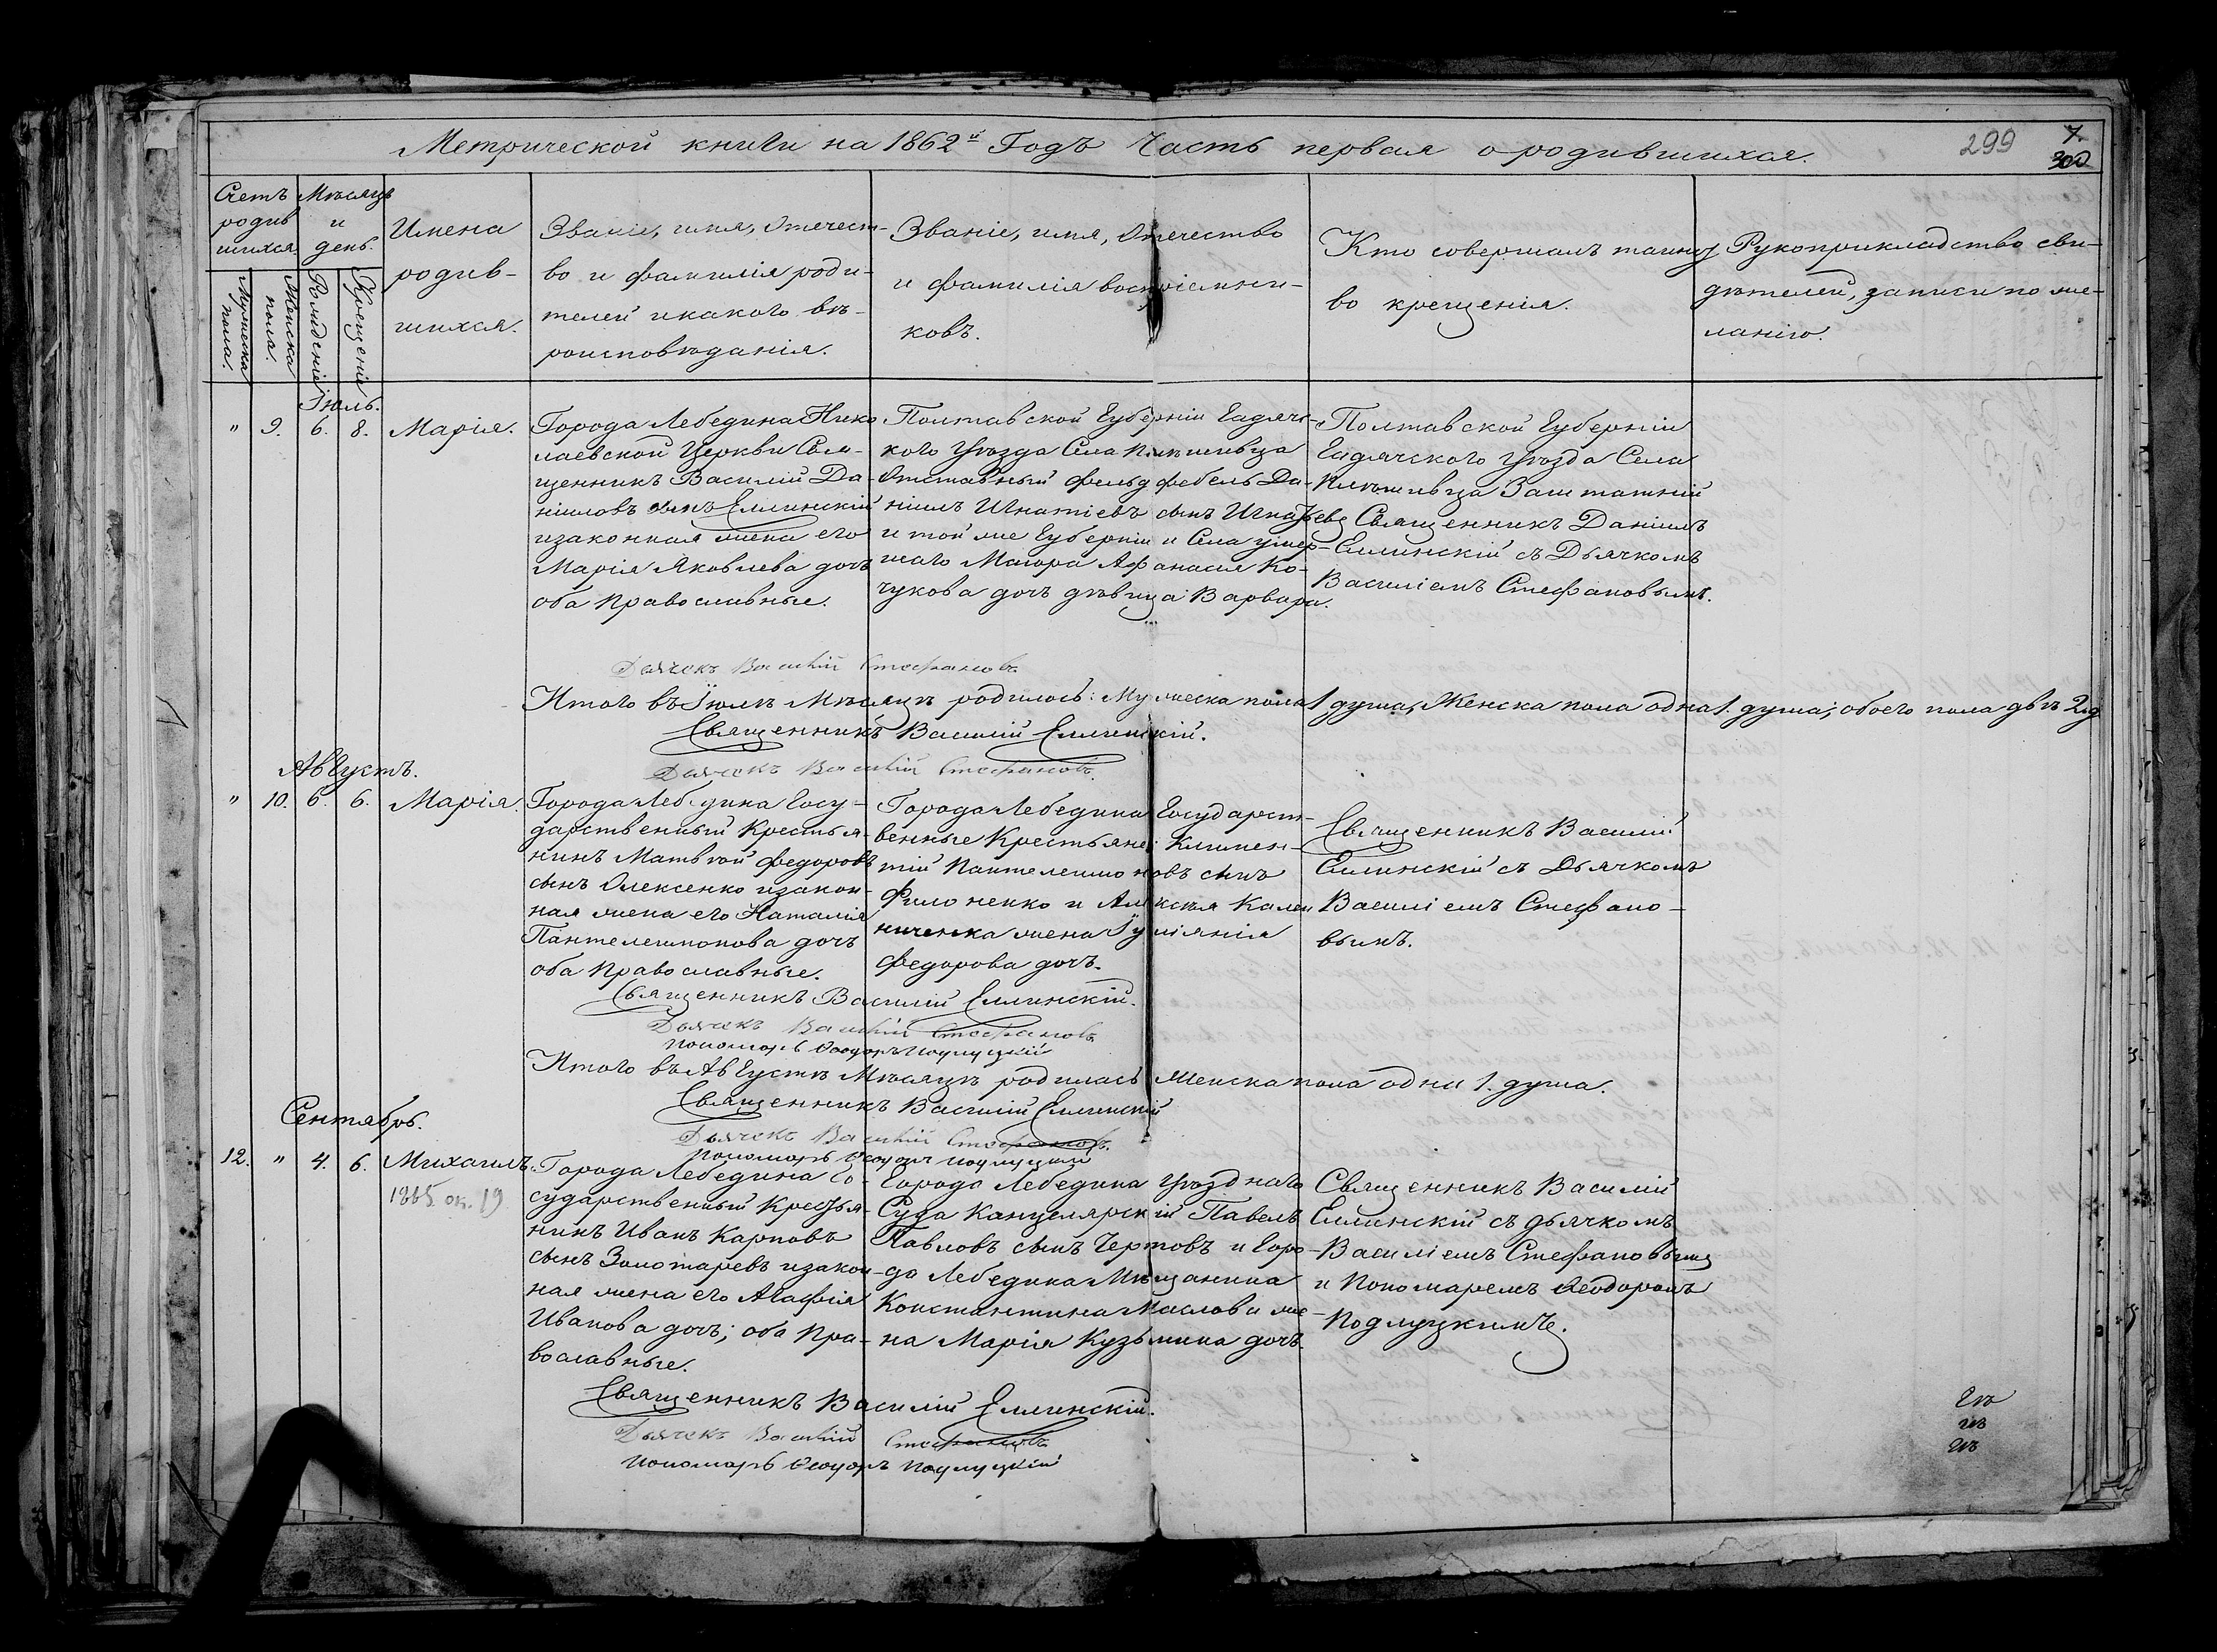 Метрической книги на 1862й Годъ Часть первая о родившихся.
299
7.
300
Счетъ родившихся
Мѣсяцъ и день.
Мужеска пола.
Женска пола.
Рожденіе
Крещеніе
Имена
родив-
шихся.
Званіе, имя, отечест-
во и фамилія роди-
телей и какого вѣ-
роисповѣданія.
Званіе, имя, Отечество
и фамилія воспріемни-
ковъ.
Кто совершалъ таинст
во крещенія.
Рукоприкладство сви-
дѣтелей, записи по же-
ланію.
Іюль.
" 9. 6. 8. Марія.
Города Лебедина Нико
лаевской Церкви Свя-
щенникъ Василій Да-
ніиловъ сынъ Еллинскій
и законная жена его
Марія Яковлева дочь
оба православные.
Полтавской Губерніи Гадячс-
кого Уѣзда Села
Отставный фельдфебель Да-
ніилъ Игнатіевъ сынъ
и той же Губерніи и Села умер-
шаго Маіора Афанасія Ко-
чукова дочь дѣвица Варвара.
Полтавской Губерніи
Гадячского Уѣзда Села
Заштатній
Священникъ Даніилъ
Еллинскій съ Дьячкомъ
Василіемъ Стефановымъ.
Дьячекъ Василій Стефановъ
Итого въ Іюлѣ Мѣсяцѣ родилось: Мужеска пола 1 душа, Женска пола одна 1. душа; обоего пола двѣ 2. д
Священникъ Василій Еллинскій.
Дьячекъ Василій Стефановъ.
Августъ.
" 10. 6. 6. Марія.
Города Лебедина Госу-
дарственный Крестья-
нинъ Матвѣй Федоровъ
сынъ Олексенко и закон-
ная жена его Наталія
Пантелеимонова дочь
оба православные.
Города Лебедина Государст-
венные Крестьяне: Климен-
тій Пантелеимоновъ сынъ
Филоненко и Алексѣя Кален
ниченка жена Іуліянія
Федорова дочь.
Священникъ Василій
Еллинскій съ Дьячкомъ
Василіемъ Стефано-
вымъ.
Священникъ Василій Еллинскій.
Дьячекъ Василій Стефановъ
Пономарь Ѳеодоръ Подлуцкій
Итого въ Августѣ Мѣсяцѣ родилась Женска пола одна 1. душа.
Священникъ Василій Еллинскій
Дьячекъ Василій Стефановъ.
Пономарь Ѳеодоръ Подлуцкій
Сентябрь.
12. " 4. 6. Михаилъ.
1885. ок. 19
Города Лебедина Го-
сударственный Крестья-
нинъ Иванъ Карповъ
сынъ Золотаревъ и закон-
ная жена его Агафія
Иванова дочь; оба Пра-
вославные.
Города Лебедина Уѣзднаго
Суда Канцелярскій Павелъ
Павловъ сынъ Чертовъ и Горо-
да Лебедина Мѣщанина
Константина Маслова же-
на Марія Кузьмина дочь.
Священникъ Василій
Еллинскій съ дьячкомъ
Василіемъ Стефановымъ
и Пономаремъ Ѳеодоромъ
Подлуцкимъ.
Священникъ Василій Еллинскій.
Дьячекъ Василій Стефановъ
Пономарь Ѳеодоръ Подлуцкій